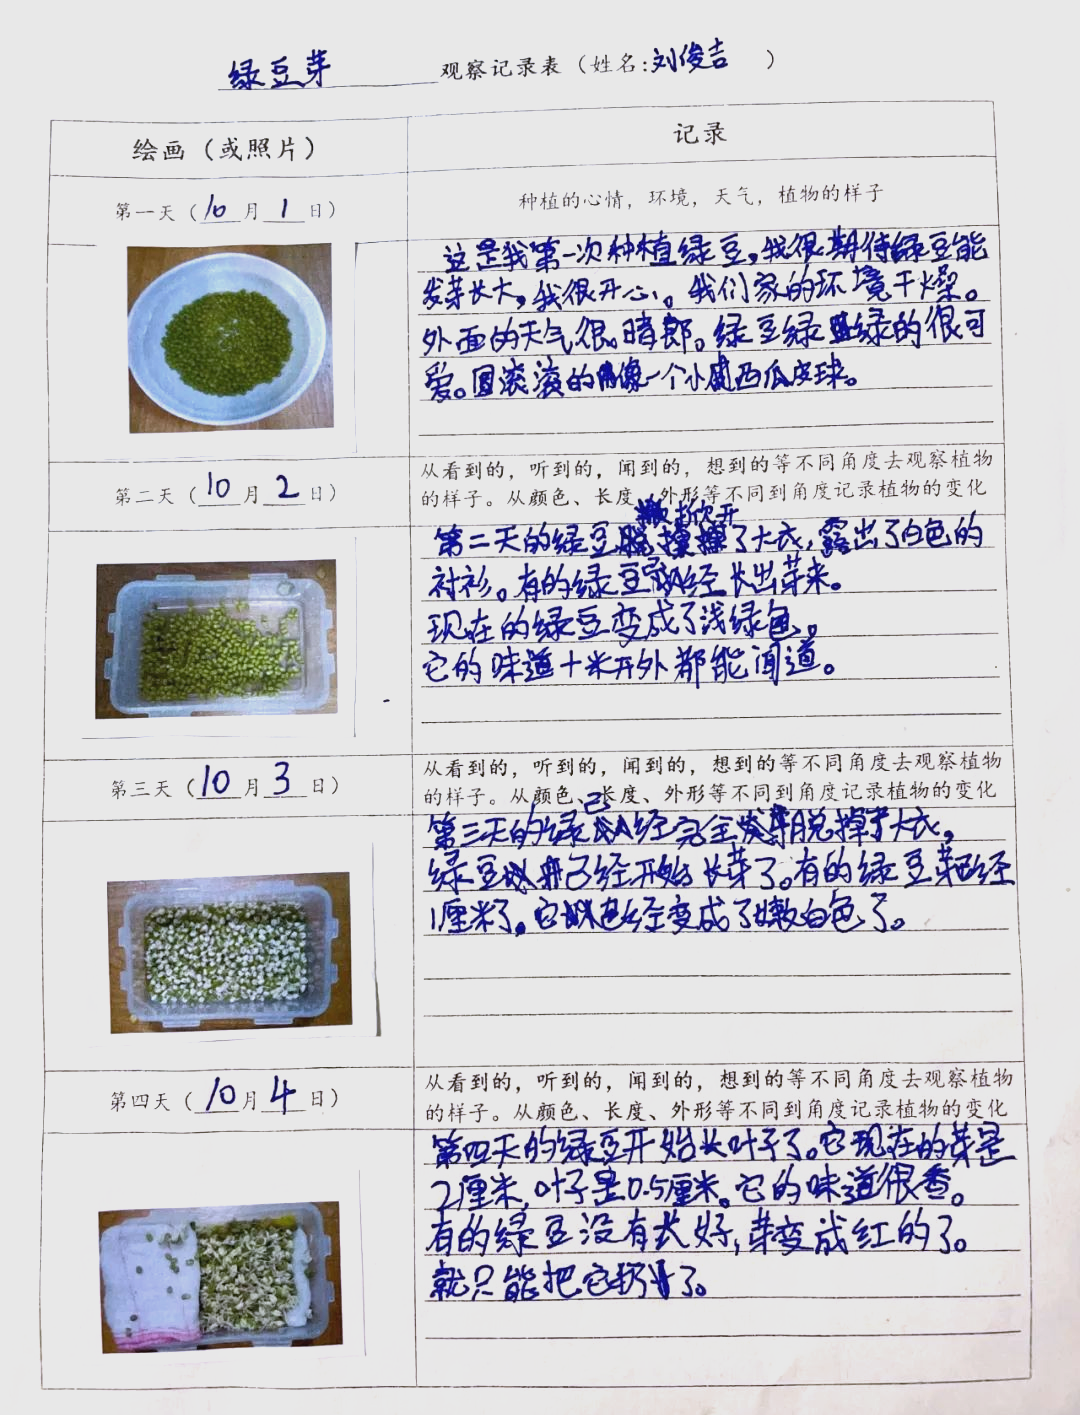 绿豆芽 观察记录表（姓名:刘俊吉 ）
绘画（或照片）
记录
第一天（10月1日）
种植的心情，环境，天气，植物的样子
这是我第一次种植绿豆，我很期待绿豆能
发芽长大，我很开心。我们家的环境干燥。
外面的天气很晴郎。绿豆绿绿的很可
爱。圆滚滚的像一个小西瓜皮球。
第二天（10月2日）
从看到的，听到的，闻到的，想到的等不同角度去观察植物
的样子。从颜色、长度、外形等不同到角度记录植物的变化
第二天的绿豆掀开了大衣，露出了白色的
衬衫。有的绿豆已经长出芽来。
现在的绿豆变成了浅绿色。
它的味道十米开外都能闻道。
第三天（10月3日）
从看到的，听到的，闻到的，想到的等不同角度去观察植物
的样子。从颜色、长度、外形等不同到角度记录植物的变化
第三天的绿已经完全脱掉了大衣，
绿豆已经开始长芽了。有的绿豆芽已经
1厘米了。它已经变成了嫩白色了。
第四天（10月4日）
从看到的，听到的，闻到的，想到的等不同角度去观察植物
的样子。从颜色、长度、外形等不同到角度记录植物的变化
第四天的绿豆开始长叶子了。它现在的芽是
2厘米，叶子是0.5厘米。它的味道很香。
有的绿豆没有长好，芽变成红的了。
就只能把它扔了。